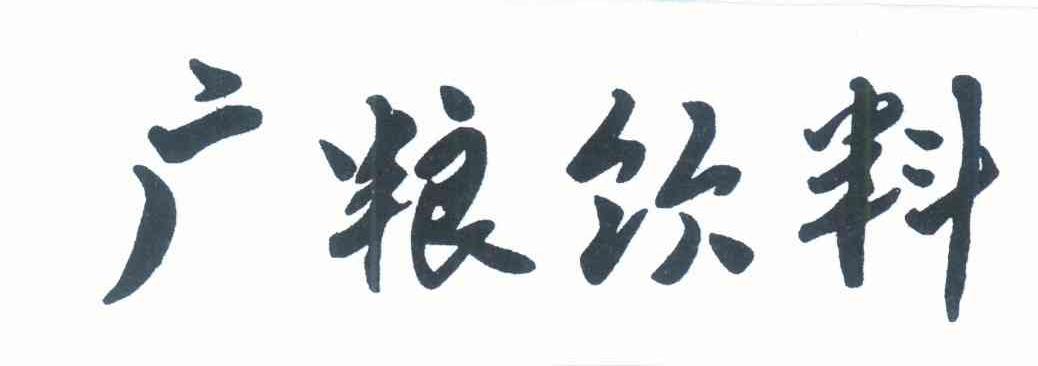 广粮饮料